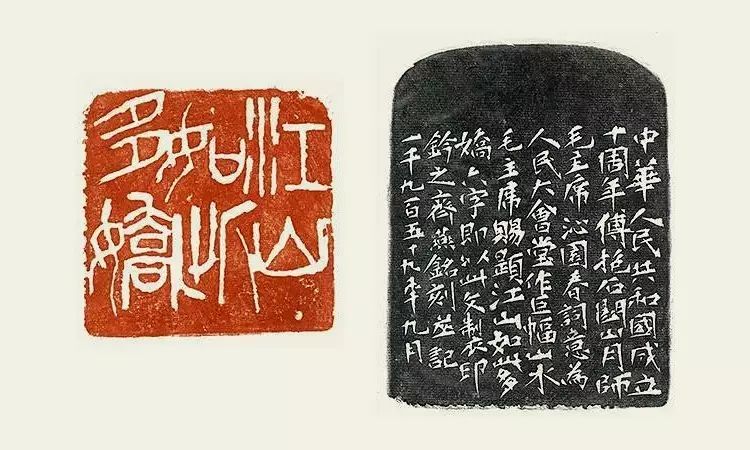 江山
如此
多嬌
中華人民共和國成立
十周年傅抱石關山月師
毛主席沁園春詞意為
人民大會堂作巨幅山水
毛主席賜題江山如此多
嬌六字即以此文製印
鈐之齊燕銘刻並記
一千九百五十九年九月